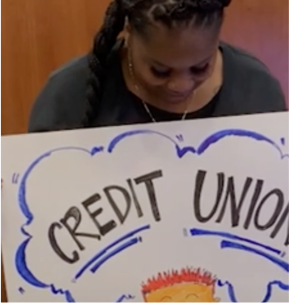 CREDIT UNION